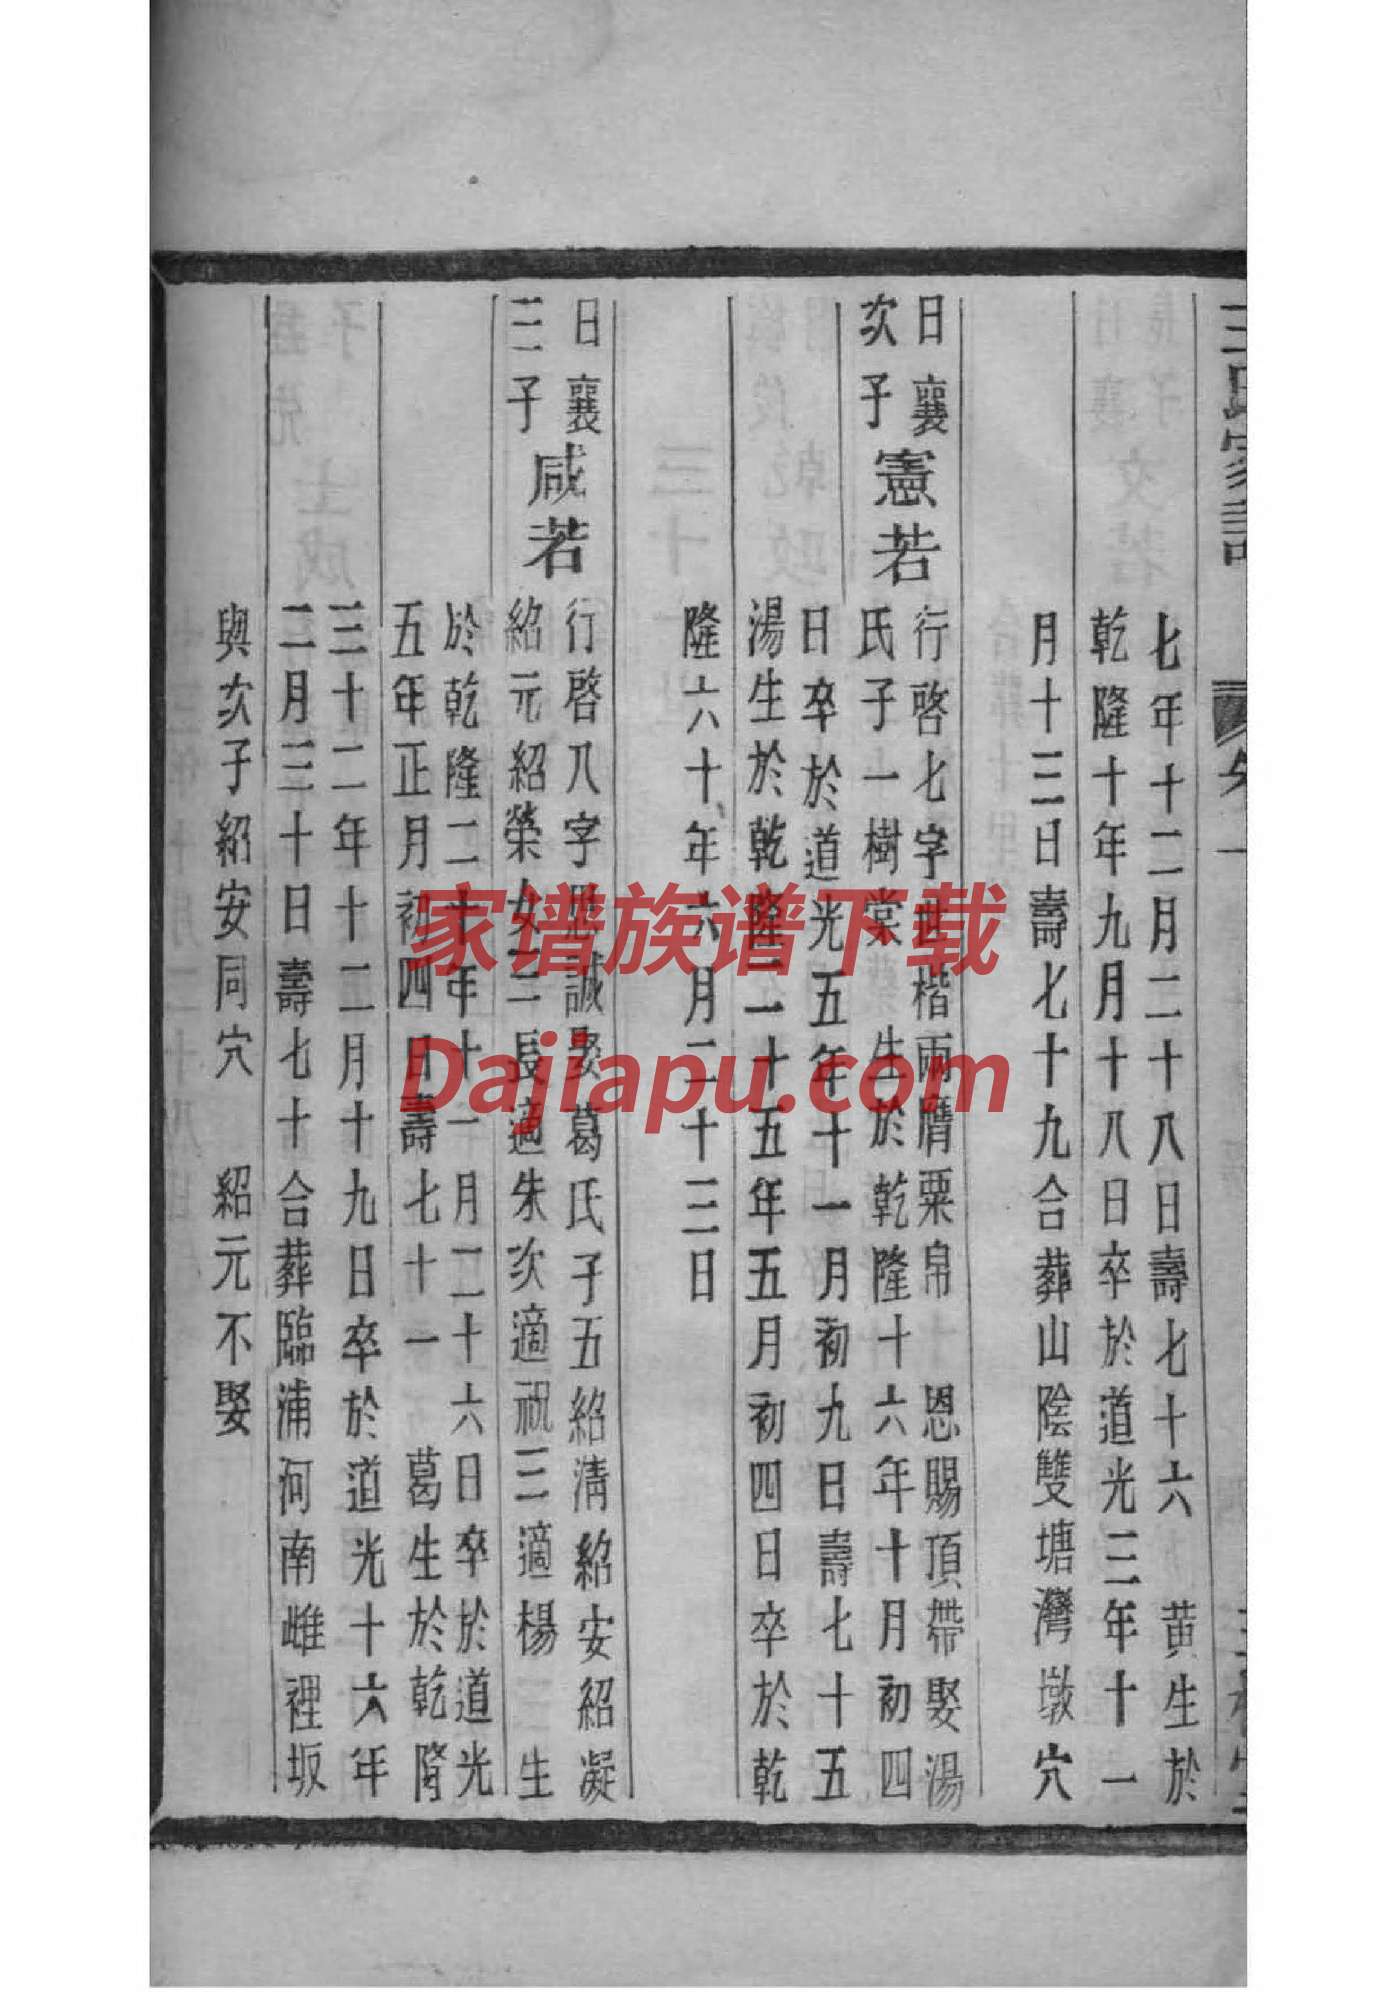 七年十二月二十八日壽七十六 黄生於
乾隆十年九月十八日卒於道光三年十一
月十三日壽七十九合葬山陰雙塘灣墩穴
日襄
次子
憲若
行啓七字世楷雨膺粟帛 恩賜頂帶娶湯
氏子一樹棠 生於乾隆十六年十月初四
日卒於道光五年十一月初九日壽七十五
湯生於乾隆二十五年五月初四日卒於乾
隆六十年六月二十三日
日襄
三子
咸若
行啓八字 誠娶葛氏子五紹淸紹安紹凝
紹元紹榮女三長適朱次適祝三適楊 生
於乾隆二十年十一月二十六日卒於道光
五年正月初四日壽七十一 葛生於乾隆
三十二年十二月十九日卒於道光十六年
二月三十日壽七十合葬臨浦河南雌裡坂
與次子紹安同穴 紹元不娶
家谱族谱下载
Dajiapu.com